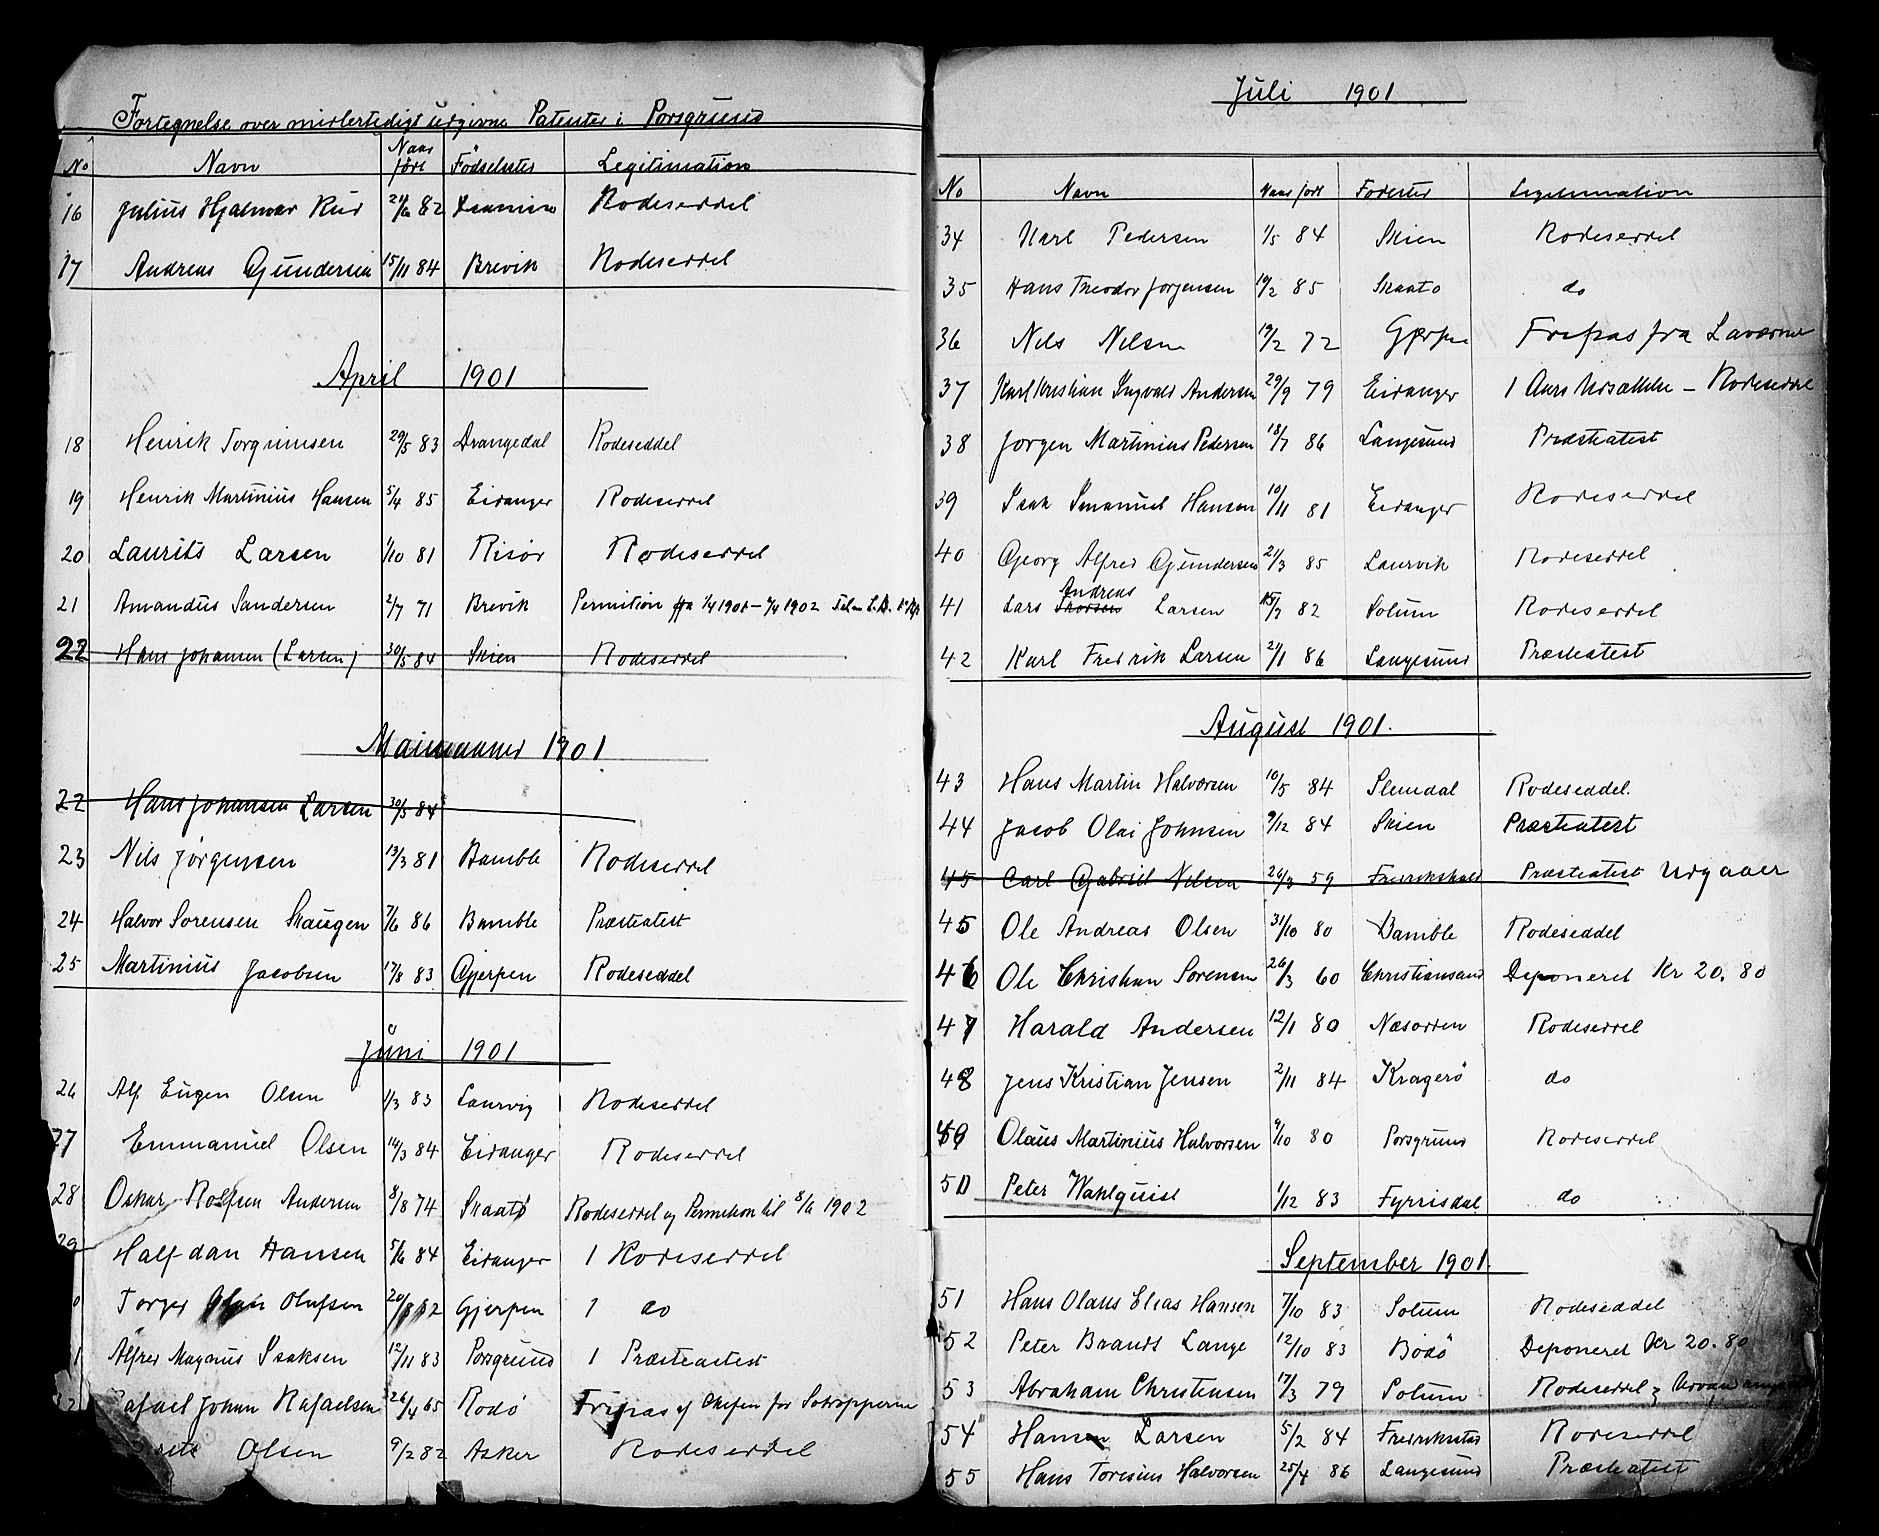 Fortegnelse over midlertidigt udgivne Patenter i Porsgrund
No Navn Naar født Fødselssted Legitimation
16 Julius Hjalmar Rud 21/6 82 Rodeseddel
17 Andreas Gundersen 15/11 84 Brevik Rodeseddel
April 1901
18 Henrik Torgrimsen 29/5 83 Drangedal Rodeseddel
19 Henrik Martinius Hansen 5/4 85 Eidanger Rodeseddel
20 Laurits Larsen 1/10 81 Risör Rodeseddel
21 Amandus Sandersen 2/7 71 Brevik Permition fra 1/4 1901 - 1902
22 Hans Johansen (Larsen) 30/5 84 Skien Rodeseddel
Maimaaned 1901
22 Hans Johansen Larsen 30/5 84
23 Nils Jørgensen 13/3 81 Bamble Rodeseddel
24 Halvor Sorensen Skaugen 7/6 86 Bamble Præsteatest
25 Martinius Jacobsen 17/8 83 Gjerpen Rodeseddel
Juni 1901
26 Alf Eugen Olsen 1/3 83 Laurvig Rodeseddel
27 Emmanuel Olsen 14/3 84 Eidanger Rodeseddel
28 Oskar Rolfsen Andersen 8/8 74 Skaatø Rodeseddel og Permition til 8/6 1902
29 Halfdan Hansen 5/6 84 Eidanger 1 Rodeseddel
0 Torger Olufsen 20/8 82 Gjerpen 1 do
1 Alfred Magnus Isaksen 12/11 83 Porsgrund 1 Præsteattest
32 Rafael Johan Rafaelsen 26/4 65 Rodø Fripas af Chefen for
Olsen 9/2 82 Asker Rodeseddel
Juli 1901
No Navn Naar født Fødested Legitimation
34 Karl Pedersen 1/5 84 Skien Rodeseddel
35 Hans Theodor Jorgensen 19/2 85 Skaatø do
36 Nils Nilsen 19/2 72 Gjerpen Fripas fra Laverne
37 Karl Kristian Ingvald Andersen 29/9 79 Eidanger 1 Aars Udsættelse - Rodeseddel
38 Jorgen Martinius Pedersen 18/7 86 Langesund Præsteatest
39 Isak Imanuel Hansen 10/11 81 Eidanger Rodeseddel
40 Georg Alfred Gundersen 21/3 85 Laurvik Rodeseddel
41 Lars Andreas Larsen 15/2 82 Solum Rodeseddel
42 Karl Fredrik Larsen 21/1 86 Langesund Præsteatest
August 1901.
43 Hans Martin Halvorsen 10/5 84 Slemdal Rodeseddel.
44 Jacob Olai Johnsen 9/12 84 Skien Præsteatest
45 Carl Gabriel Nilsen 26/3 59 Fredrikshald Præsteatest Udgaaer
45 Ole Andreas Olsen 31/10 80 Bamble Rodeseddel
46 Ole Christian Sorensen 26/3 60 Christiansand Deponeret Kr 20.80
47 Harald Andersen 12/1 80 Næsodden Rodeseddel
48 Jens Kristian Jensen 2/11 84 Kragerö do
49 Olaus Martinius Halvorsen 9/10 80 Porsgrund Rodeseddel
50 Peter Wahlquist 1/12 83 Fyrrisdal do
September 1901.
51 Hans Olaus Elias Hansen 7/10 83 Solum Rodeseddel
52 Peter Brandt Lange 12/10 83 Bodö Deponeret Kr 20.80
53 Abraham Christensen 17/3 79 Solum Rodeseddel
54 Hansen Larsen 5/2 84 Fredrikstad Rodeseddel
55 Hans Toresius Halvorsen 25/4 86 Langesund Præsteatest